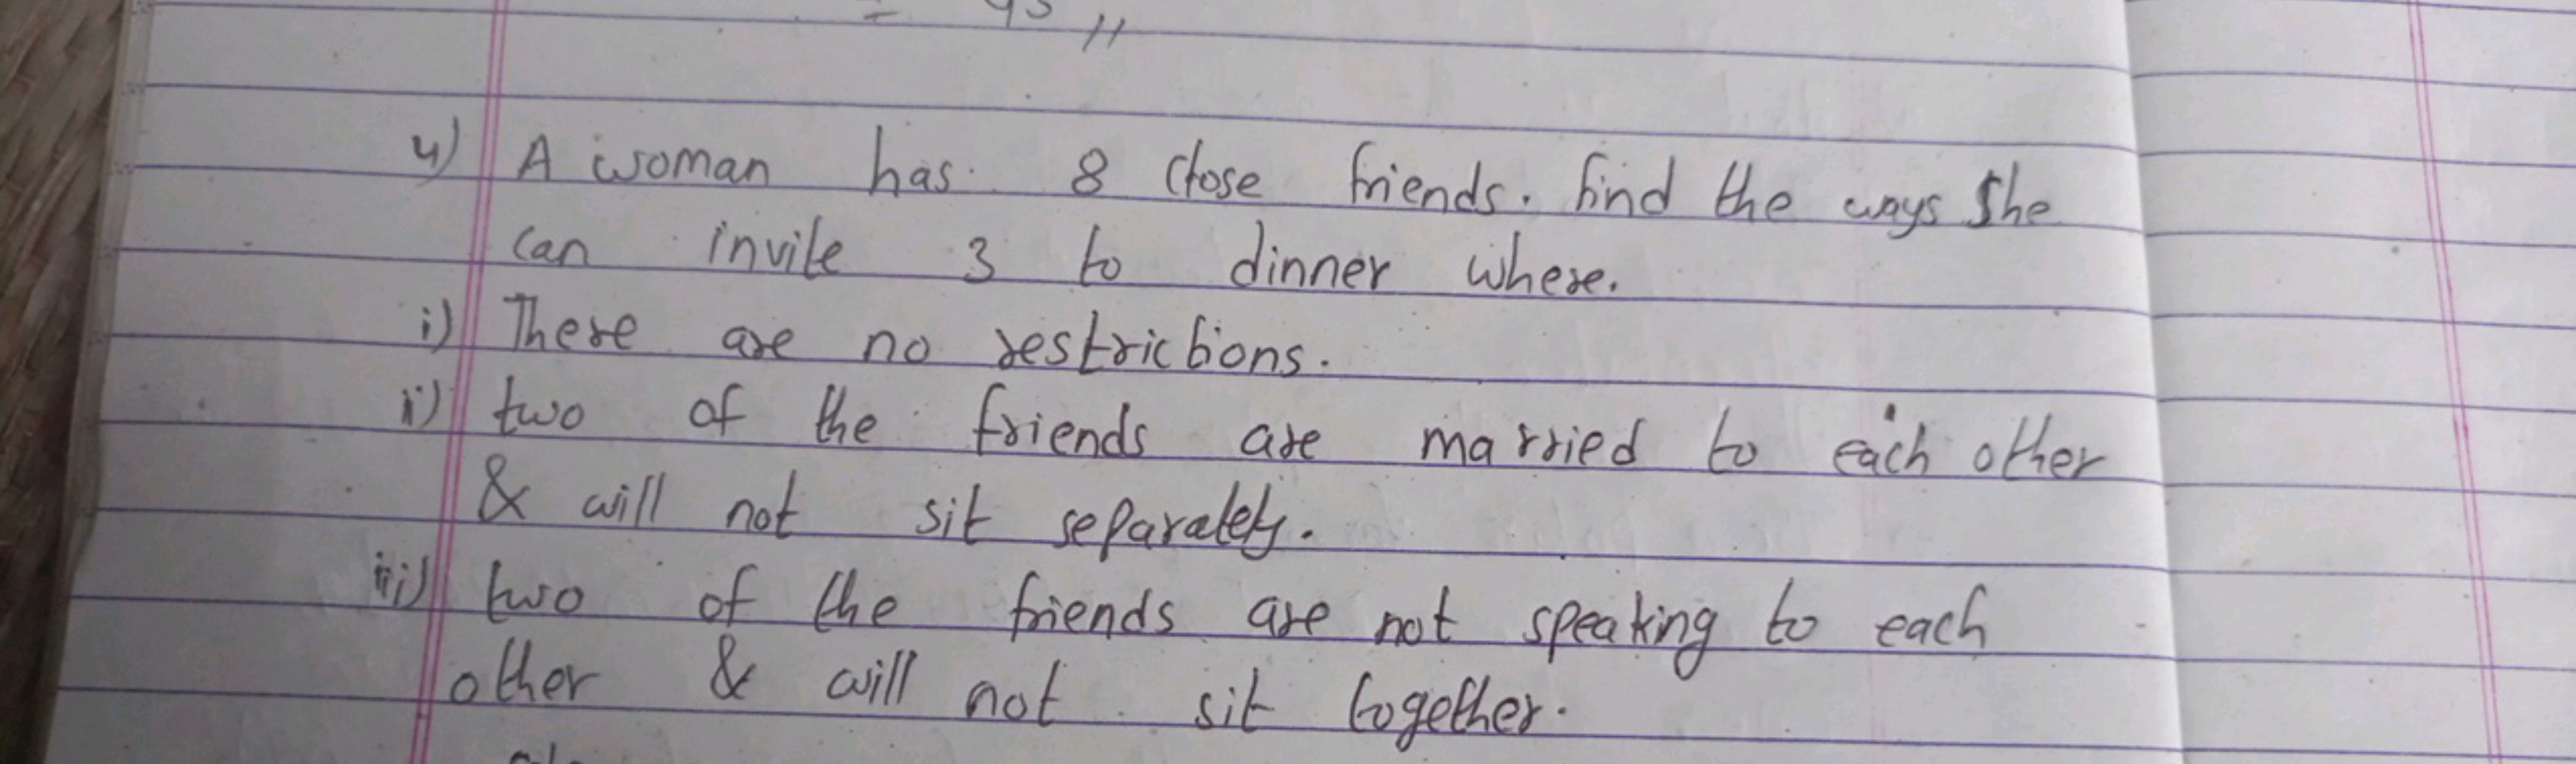 = 45 //
4) A woman has 8 close friends. find the ways she
can invite 3 to dinner where.
i) There are no restrictions.
ii) two of the friends are married to each other
& will not sit separately.
iii) two of the friends are not speaking to each
other & will not sit together.